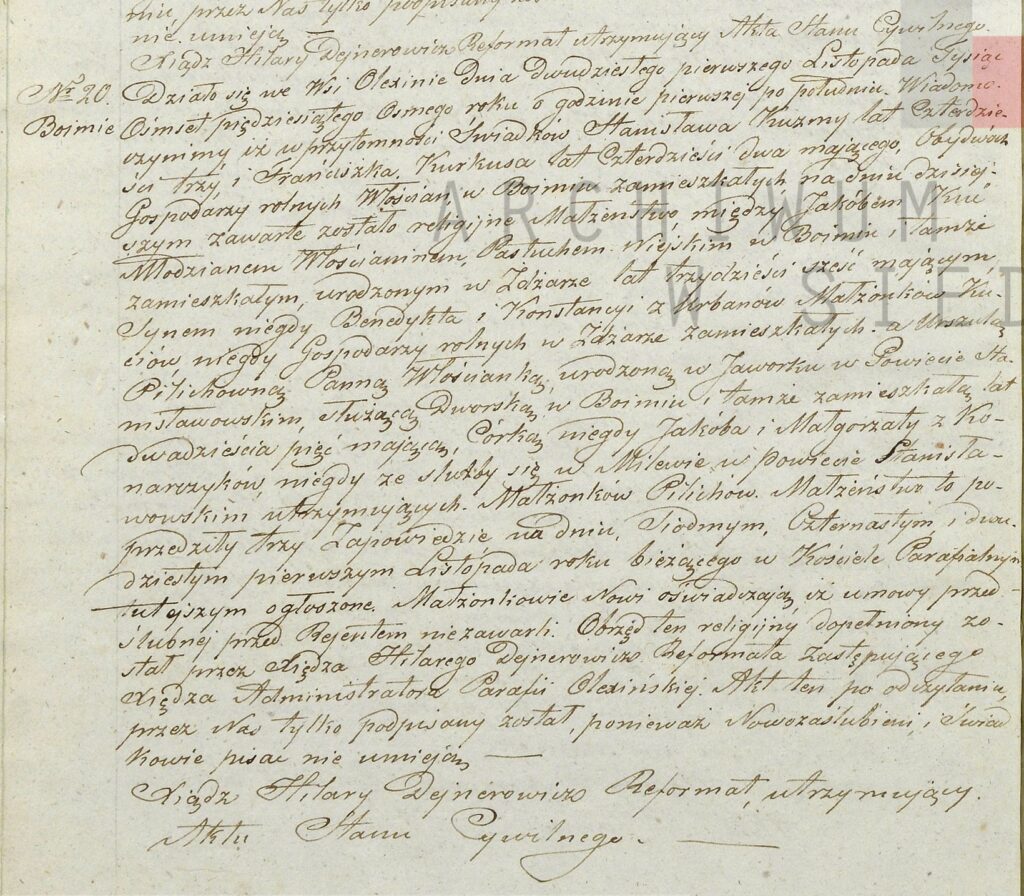 przez Nas tylko podpisany
nie umieją —
Xiądz Hilary Dejnerowicz Reformat utrzymujący Akta Stanu Cywilnego.
Nr 20.
Boimie
Działo się we Wsi Olexinie dnia Dwudziestego pierwszego Listopada Tysiąc
Ośmset pięćdziesiątego Osmego roku o godzinie pierwszej po południu. Wiadomo
czynimy iż w przytomności Świadków Stanisława Kuzmy lat Czterdzie-
ści trzy i Franciszka Kurkusa lat Czterdzieści dwa mającego, Obydwóch
Gospodarzy rolnych Włościan w Boimiu zamieszkałych na dniu dzisiej-
szym zawarte zostało religijne Małżeństwo między Jakóbem Kuć
Młodzianem Włościaninem, Pastuchem Wiejskim w Boimiu i tamże
zamieszkałym, urodzonym w Zdżarze lat trzydzieści sześć mającym,
Synem niegdy Benedykta i Konstancyi z Urbanów Małżonków Ku-
ciów, niegdy Gospodarzy rolnych w Zdżarze zamieszkałych – a Urszulą
Pilichowną Panną Włościanką, urodzoną w Jaworku w Powiecie Sta-
nisławowskim, służącą Dworską w Boimiu i tamże zamieszkałą lat
dwadzieścia pięć mającą, Córką niegdy Jakóba i Małgorzaty z Ko-
narczyków, niegdy ze służby się w Milewie w powiecie Stanisła-
wowskim utrzymujących – Małżonków Pilichów. Małżeństwo to po-
przedziły trzy Zapowiedzie na dniu, Siodmym, Czternastym i dwu-
dziestym pierwszym Listopada roku bieżącego w Kościele Parafialnym
tutejszym ogłoszone. Małżonkowie Nowi oświadczają iż umowy przed-
ślubnej przed Rejentem niezawarli. Obrzęd ten religijny dopełniony zo-
stał przez Xiędza Hilarego Dejnerowicz Reformata Zastępującego
Xiędza Administratora Parafii Olexińskiej. Akt ten po odczytaniu,
przez Nas tylko podpisany został, ponieważ Nowozaślubieni i Świad
kowie pisac nie umieją —
Xiądz Hilary Dejnerowicz Reformat, utrzymujący
Akta Stanu Cywilnego. —
ARCHIWUM
W SIED